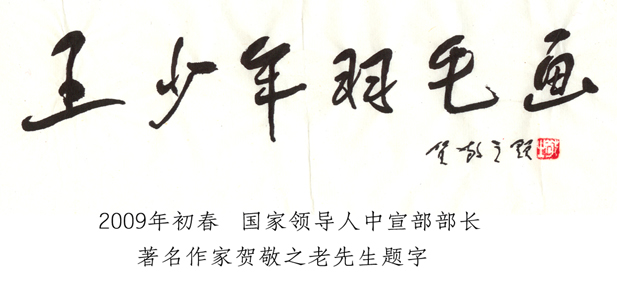 王少年羽毛画
贺敬之题
2009年初春 国家领导人中宣部部长
著名作家贺敬之老先生题字